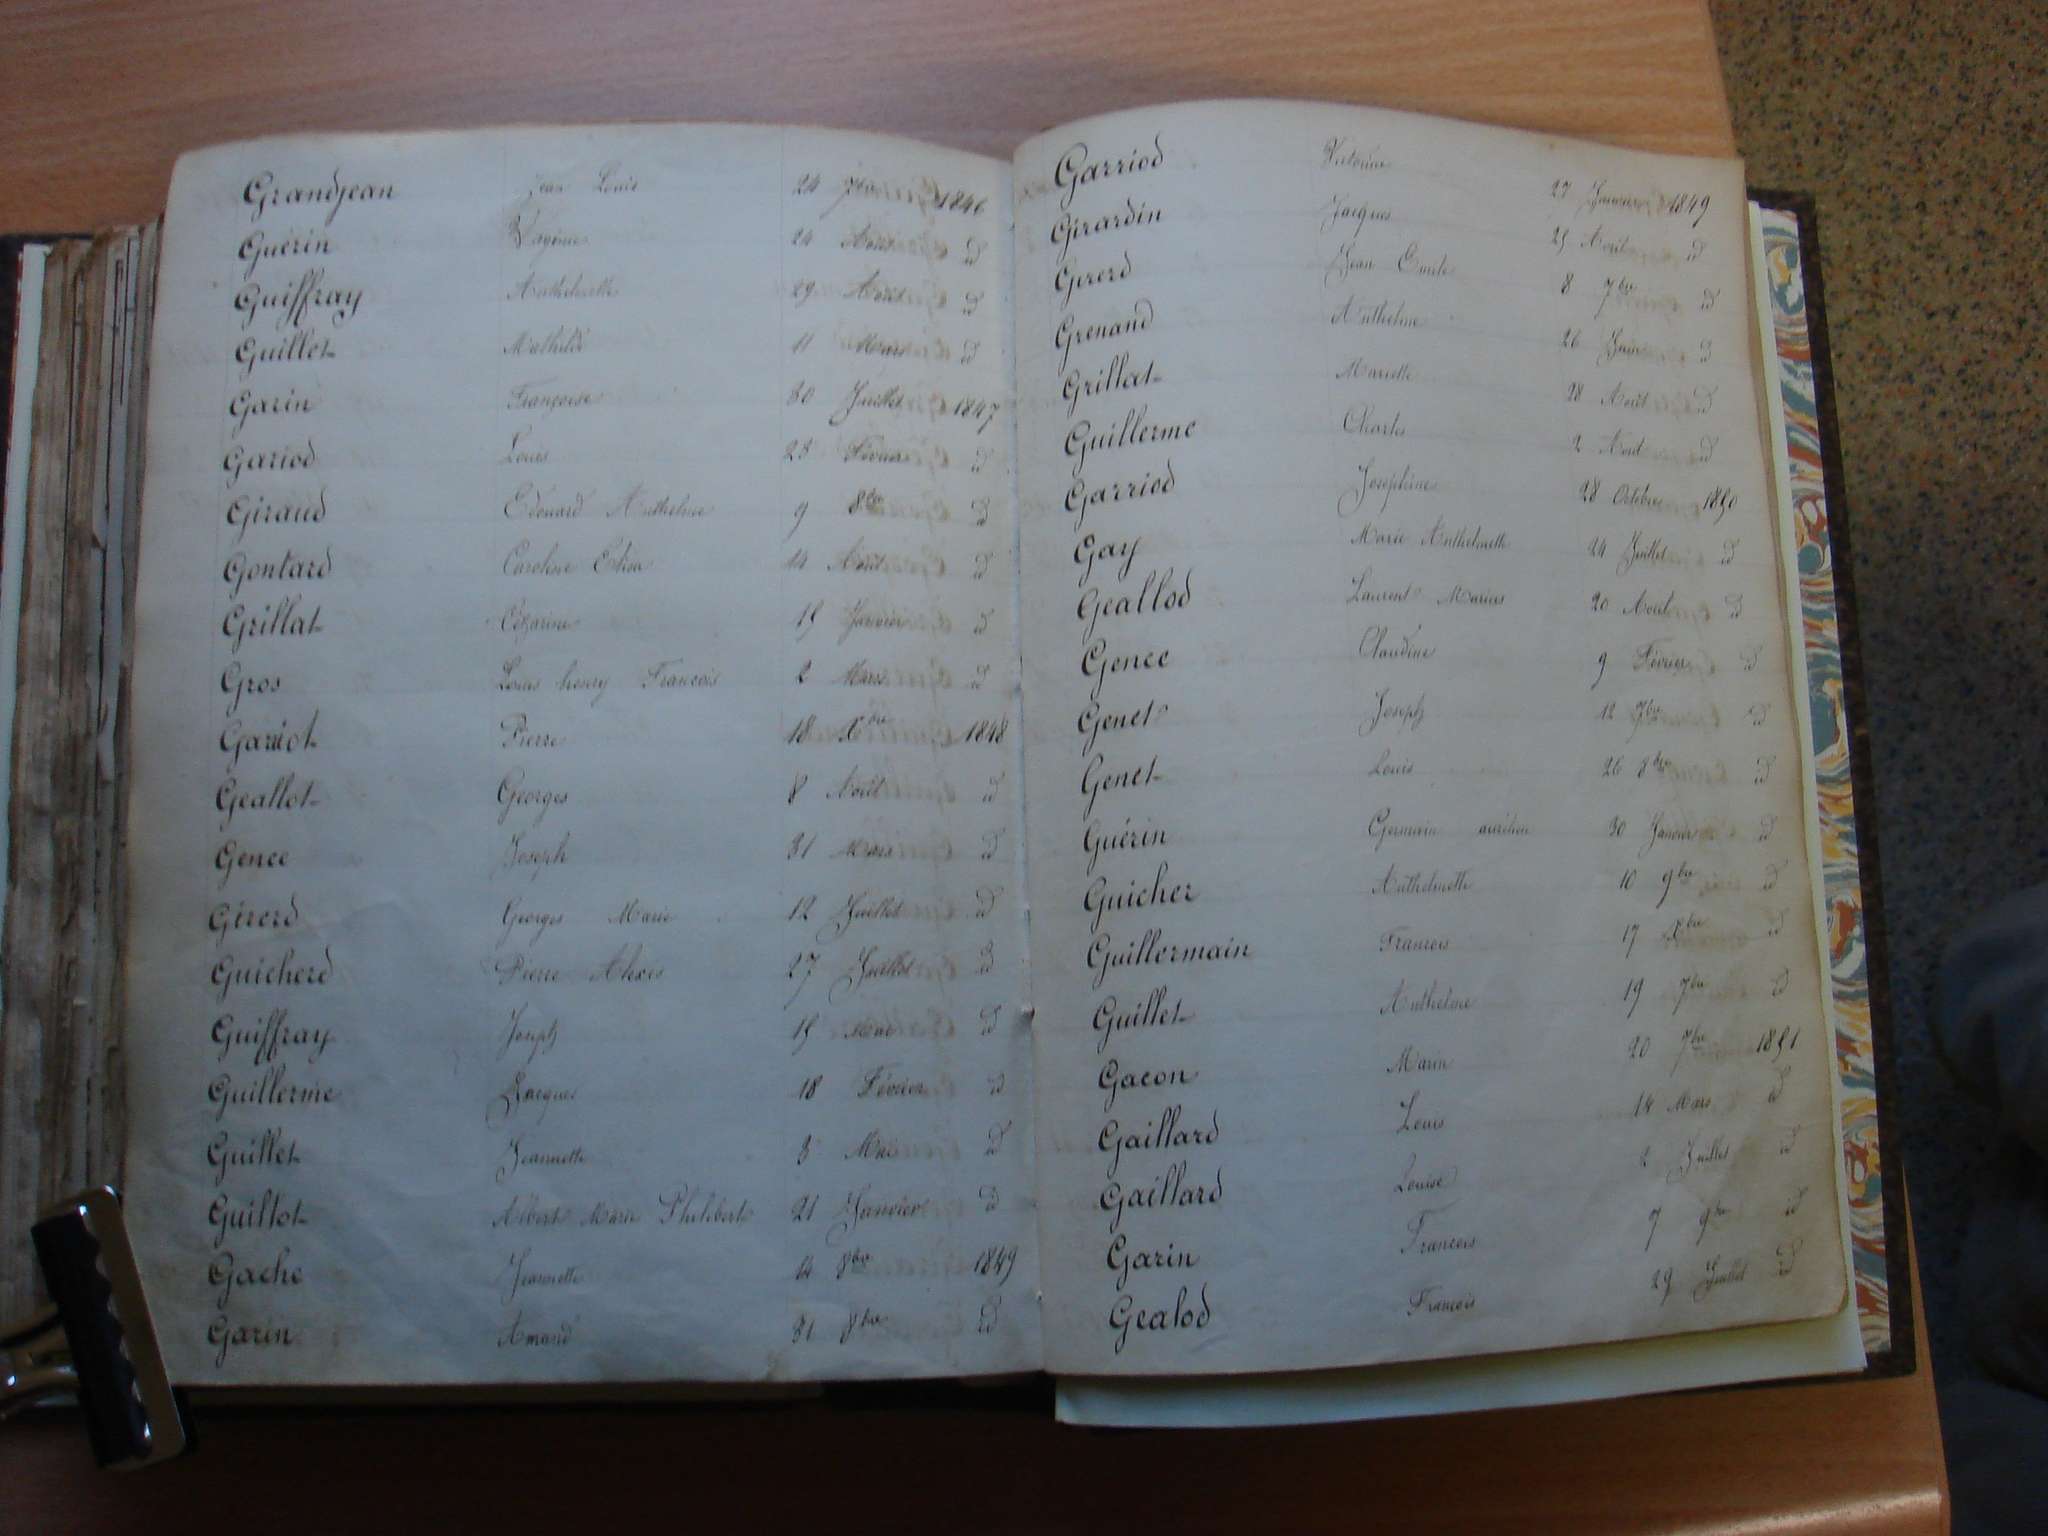 Grandjean Jean Louis 24 7bre 1846
Guérin 24 Août id
Guiffray Anthelmette 29 Août id
Guillet Mathilde 11 Mars id
Garin Françoise 30 Juillet 1847
Gariod Louis 25 Février id
Giraud Edouard Anthelme 9 8bre id
Gontard Caroline 14 Août id
Grillat Cézarine 15 Janvier id
Gros Louis henry Francois 2 Mars id
Garriot Pierre 18 Xbre 1848
Geallot Georges 8 Août id
Gence Joseph 31 Mars id
Gérerd Georges Marie 12 Juillet id
Guicherd Pierre Alexis 27 Juillet id
Guiffray Joseph 15 Mai id
Guillerme Jacques 18 Février id
Guillet Jeannette 3 Mai id
Guillot Albert Marie Philibert 21 Janvier id
Gache Jeannette 14 8bre 1849
Garin Amand 31 8bre id
Garriod Victorine 27 Janvier 1849
Girardin Jacques 25 Août id
Girerd Jean Emile 8 7bre id
Grenand Anthelme 26 Juin id
Grillat Mariette 28 Août id
Guillerme Charles 2 Aout id
Garriod Josephine 28 Octobre 1850
Gay Marie Anthelmette 24 Juillet id
Geallod Laurent Marius 20 Aout id
Gence Claudine 9 Février id
Genet Joseph 12 7bre id
Genet Louis 26 8bre id
Guérin Germain aurélien 30 Janvier id
Guicher Anthelmette 10 9bre id
Guillermain Francois 17 8bre id
Guillet Anthelme 19 7bre id
Gacon Marin 20 7bre 1851
Gaillard Louis 14 Mars id
Gaillard Louise 2 Juillet id
Garin Francois 7 9bre id
Gealod Francois 29 Juillet id